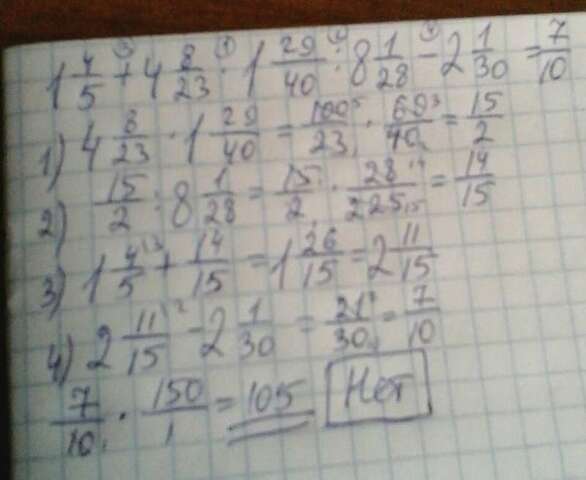 1 4/5 + 4 8/23 · 1 29/40 : 8 1/28 - 2 1/30 = 7/10
1) 4 8/23 · 1 29/40 = 100/23 · 69/40 = 15/2
2) 15/2 : 8 1/28 = 15/2 · 28/225 = 14/15
3) 1 4/5 + 14/15 = 1 26/15 = 2 11/15
4) 2 11/15 - 2 1/30 = 21/30 = 7/10
7/10 · 150/1 = 105 Нет